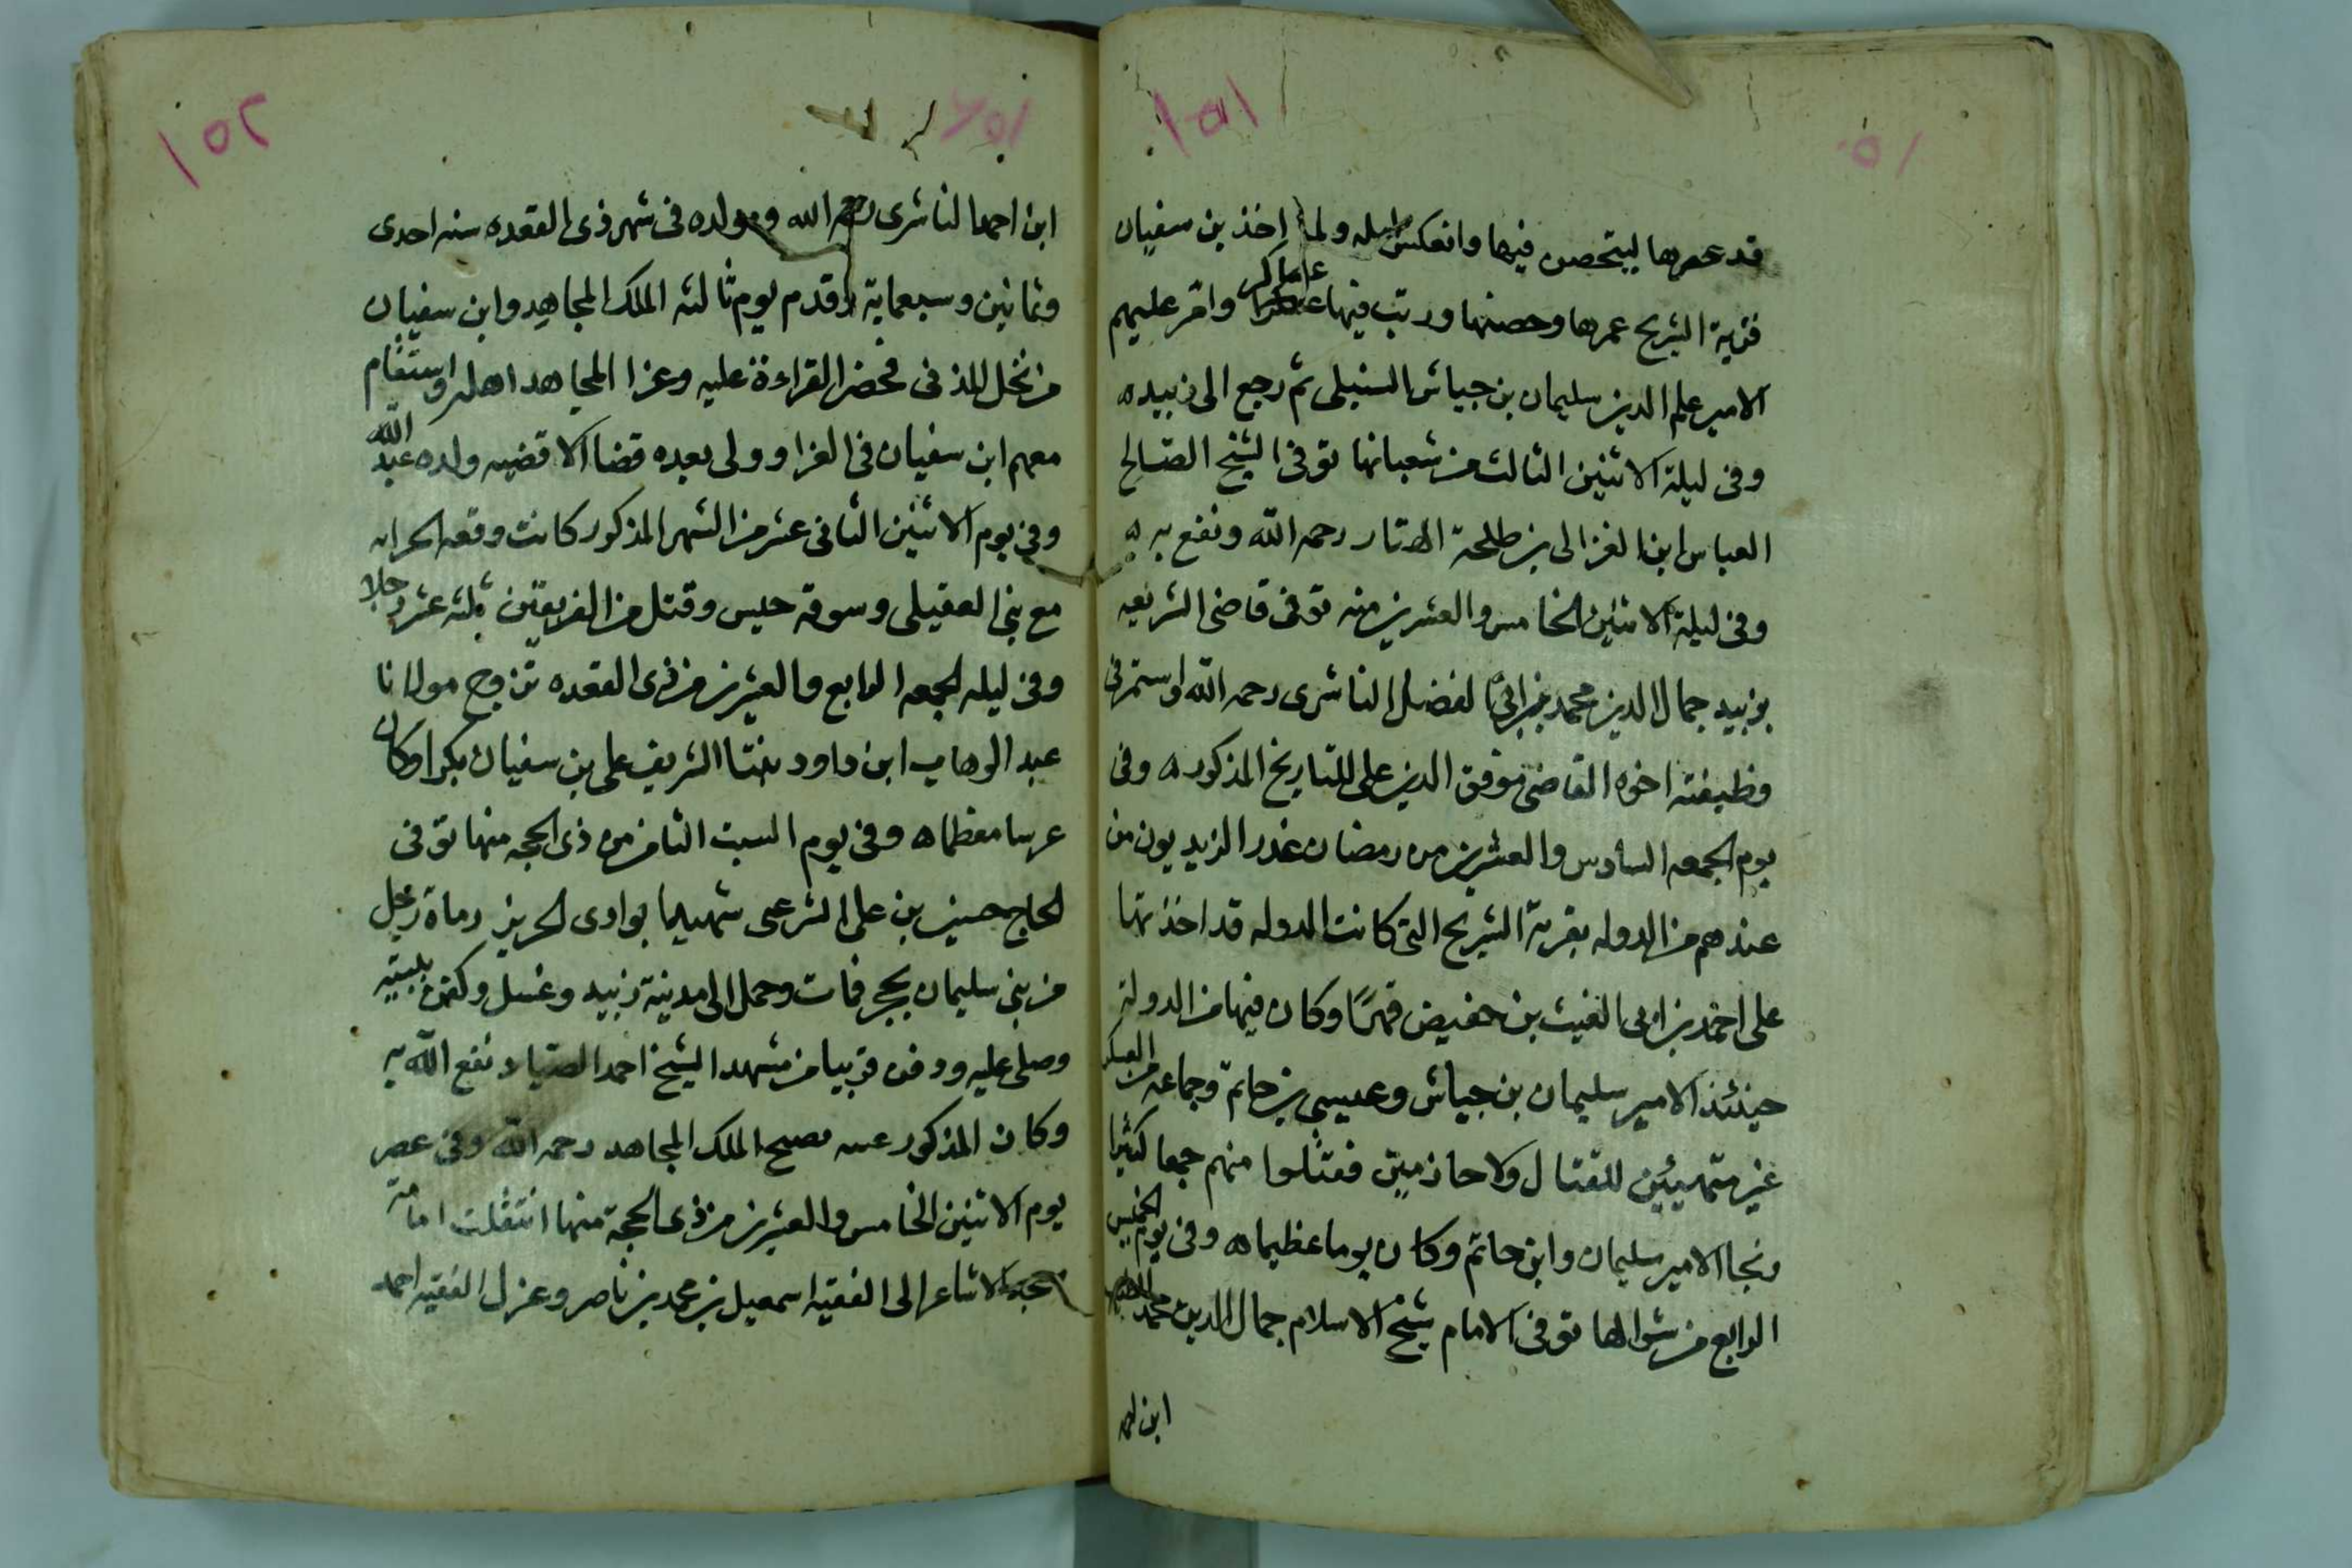 ١٥١
قد عمرها ليتحصن فيها وانعكس امله ولما اخذ بن سفيان
قرية الشريح عمرها وحصنها ورتب فيها عساكر وامر عليهم
الامير علم الدين سليمان بن جياش السنبلى ثم رجع الى زبيده
وفى ليلة الاثنين الثالث من شعبانها توفى الشيخ الصالح
العباس ابن الغزالى بن طلحة الهتار رحمه الله ونفع به
وفى ليلة الاثنين الخامس والعشرين منه توفى قاضى الشريعه
بزبيد جمال الدين محمد بن ابى الفضل الناشرى رحمه الله واستمر فى
وظيفته اخوه القاضى موفق الدين على للتاريخ المذكور ه وفى
يوم الجمعه السادس والعشرين من رمضان غدر الزيديون من
عندهم من الدوله بقرية الشريح التى كانت الدوله قد اخذتها
على احمد بن ابى الغيث بن حفيص قهرًا وكان فيها من الدولة
حينئذ الامير سليمان بن جياش وعيسى بن حاتم وجماعه من العسكر
غير متهيئين للقتال ولا حازمين فقتلوا منهم جمعا كثيرا
ونجا الامير سليمان وابن حاتم وكان يوما عظيما ه وفى يوم الخميس
الرابع من شوالها توفى الامام شيخ الاسلام جمال الدين محمد الطيب
ابن احمد
١٥٢
ابن احمد الناشرى رحمه الله ومولده فى شهر ذى القعده سنه احدى
وثمانين وسبعماية وقدم يوم ثالثه الملك المجاهد وابن سفيان
من نخل المدنى فحضر القراءة عليه وعزا المجاهد اهله واستقام
معهم ابن سفيان فى العزا وولى بعده قضا الاقضيه ولده عبد الله
وفى يوم الاثنين الثانى عشر من الشهر المذكور كانت وقعه الحرابه
مع بنى العقيلى وسوقة حيس وقتل من الفريقين ثلثه عشر رجلا
وفى ليله الجمعه الرابع والعشرين من ذى القعده تزوج مولانا
عبد الوهاب ابن داود بنت الشريف على بن سفيان بكرا وكان
عرسا معظما ه وفى يوم السبت الثامن من ذى الحجه منها توفى
الحاج حسين بن على الشرعبى شهيدا بوادى الحريز رماة رجل
من بنى سليمان بحجر فمات وحمل الى مدينة زبيد وغسل وكفن ببيته
وصلى عليه ودفن قريبا من مشهد الشيخ احمد الصياد نفع الله به
وكان المذكور ممن يصبح الملك المجاهد رحمه الله وفى عصر
يوم الاثنين الخامس والعشرين من ذى الحجة منها انتقلت امامة
مسجد الاشاعر الى الفقيه اسمعيل بن محمد بن ناصر وعزل الفقيه احمد